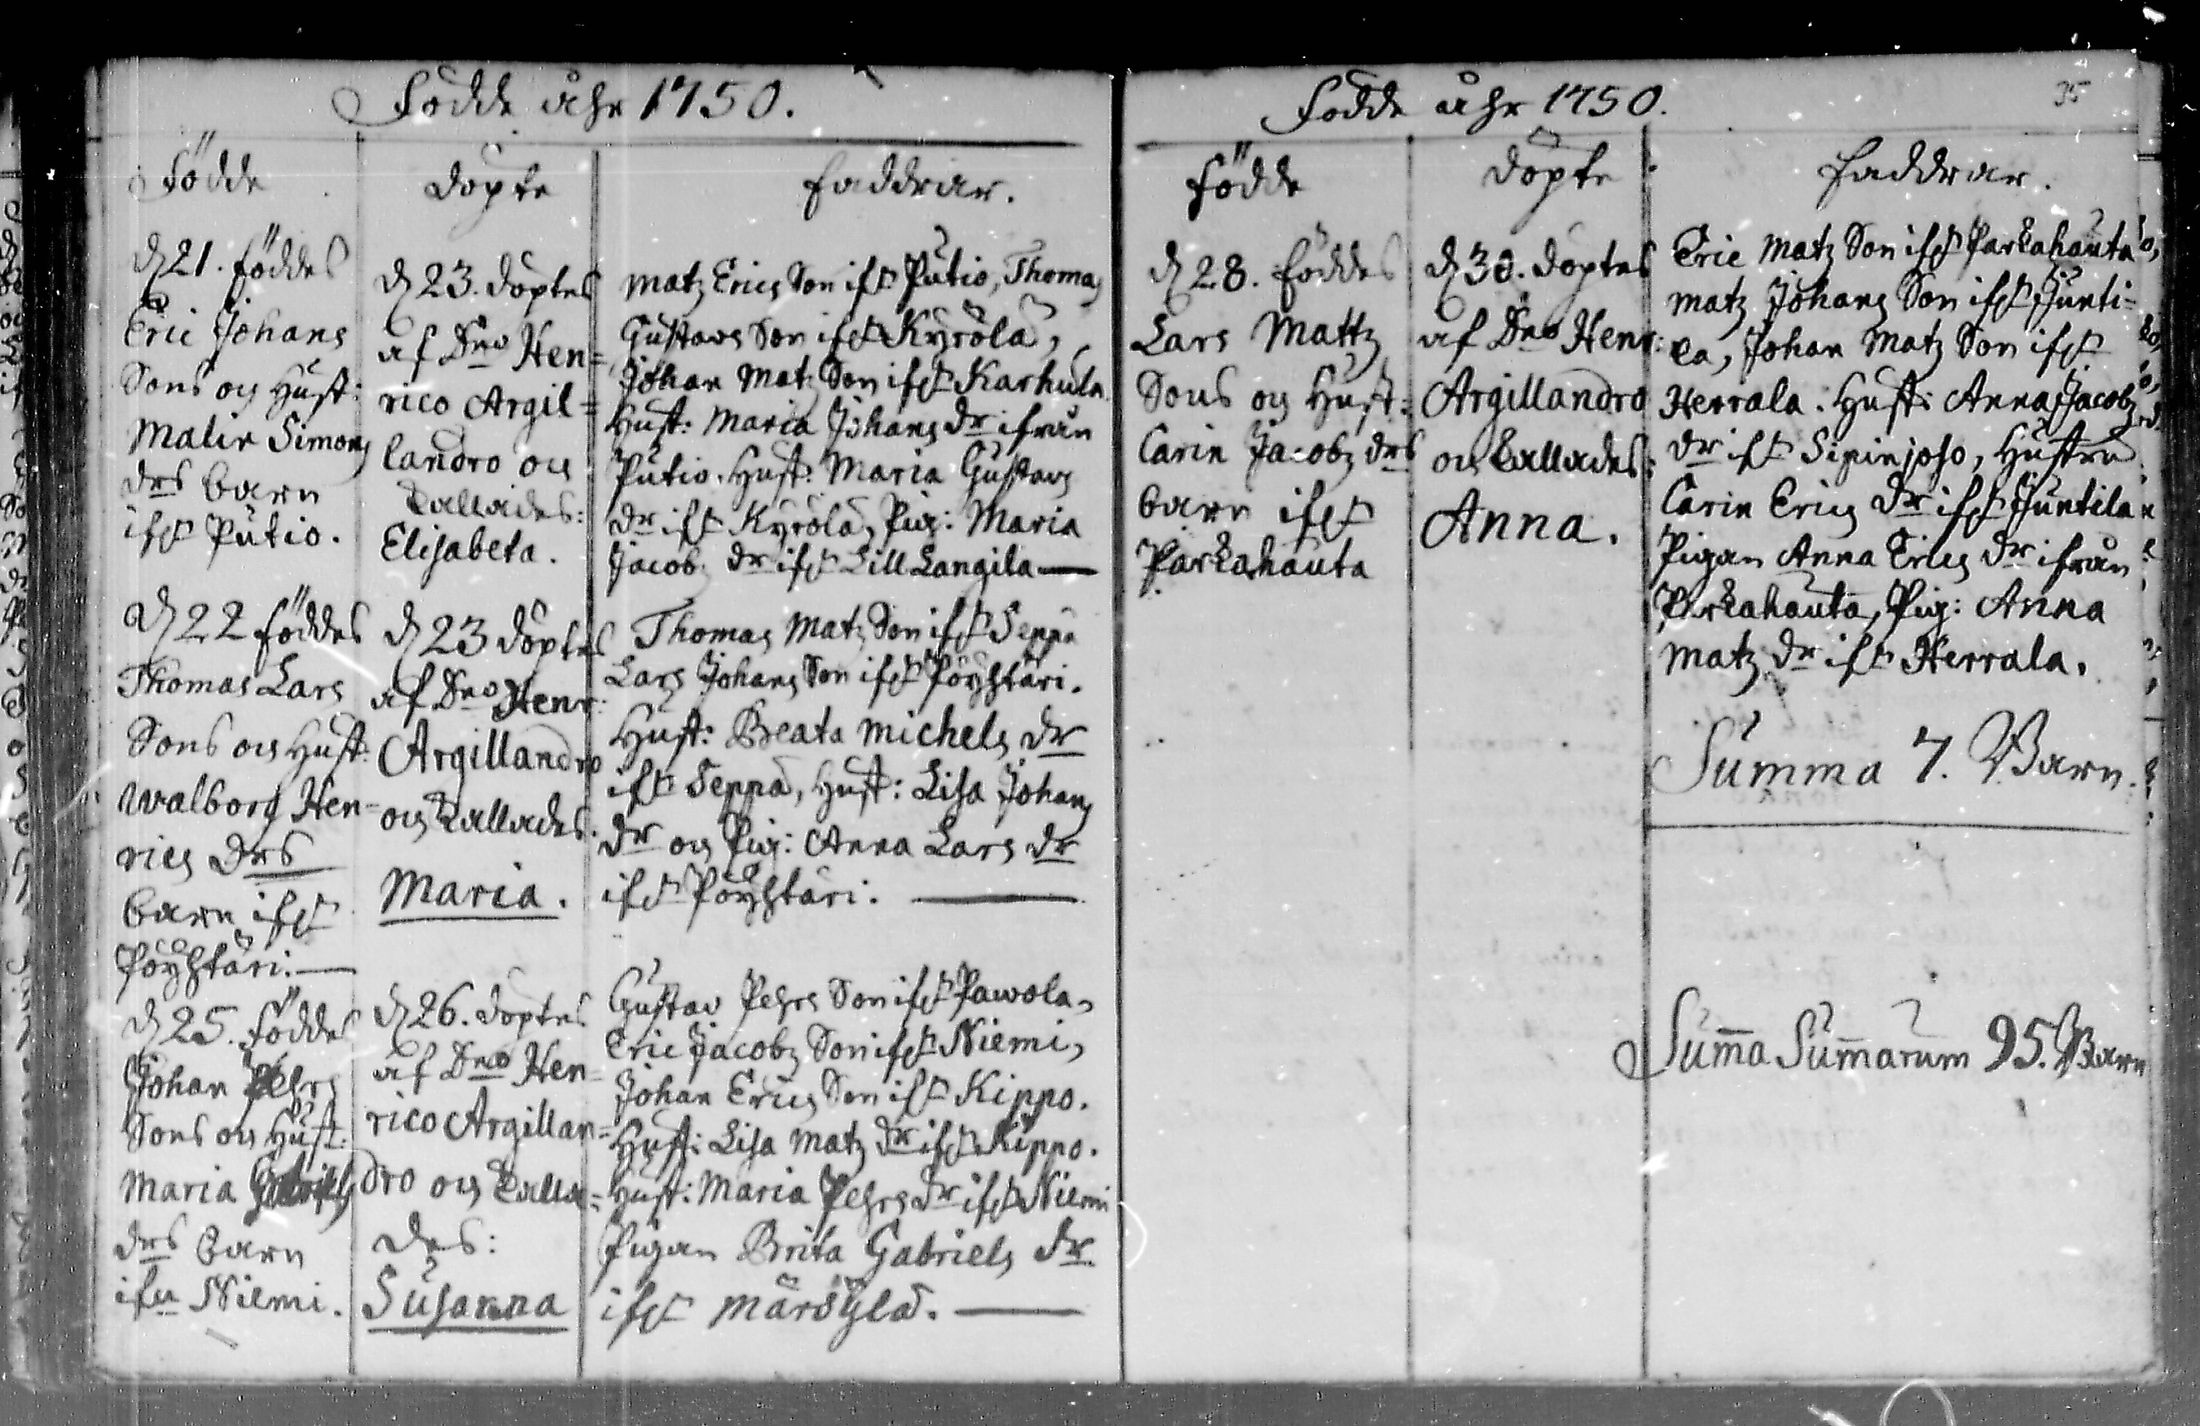 Födde åhr 1750.
Födde
döpte
faddrar.
d 21. föddes
Eric Johans
Sons og Hust:
Malin Simons
drs barn
ifr Putio.
d 23. döptes
af Dno Hen=
rico Argil=
landro og
kallades:
Elisabeta.
Matz Erics Son ifr Putio, Thomas
Gustavs Son ifr Kyrölä,
Johan Matz Son ifr Karhula
Hust: Maria Johans dr ifrån
Putio. Hust: Maria Gustavs
dr ifr Kyrölä, Pig: Maria
Jacob. dr ifr Lill Langila —
d 22 föddes
Thomas Lars
Sons og Hust:
Walborg Hen=
rics drs
barn ifr
Pöyhtäri. —
d 23 döptes
af Dno Henr:
Argillandro
og kallades.
Maria.
Thomas Matz Son ifr Seppä
Lars Johans Son ifr Pöyhtäri.
Hust: Beata Michels dr
ifr Seppä, Hust: Lisa Johans
dr og Pig: Anna Lars dr
ifr Pöyhtäri. —
d 25. föddes
Johan Pehrs
Sons og Hust:
Maria Gabriels
drs barn
ifr Niemi.
d 26. döptes
af Dno Hen=
rico Argillan=
dro og kalla=
des:
Susanna
Gustav Pehrs Son ifr Pawola,
Eric Jacobz Son ifr Niemi,
Johan Erics Son ifr Kippo.
Hust: Lisa Matz dr ifr Kippo.
Hust: Maria Pehrs dr ifr Niemi
Pigan Brita Gabriels dr
ifr Märsylä. —
Födde åhr 1750.
35
födde
döpte
faddrar.
d 28. föddes
Lars Mattz
Sons og Hust:
Carin Jacobz drs
barn ifr
Parkahauta
d 30. döptes
af Dno Henr:
Argillandro
og kallades:
Anna.
Eric Matz Son ifr Parkahauta
Matz Johans Son ifr Junti=
la, Johan Matz Son ifr
Herrala. Hust: Anna Jacobz
dr ifr Sipinjoso, Hustru
Carin Erics dr ifr Juntila
Pigan Anna Erics dr ifrån
Parkahauta, Pig: Anna
Matz dr ifr Herrala.
Summa 7. Barn.
Sum̄a Sum̄arum 95. Barn